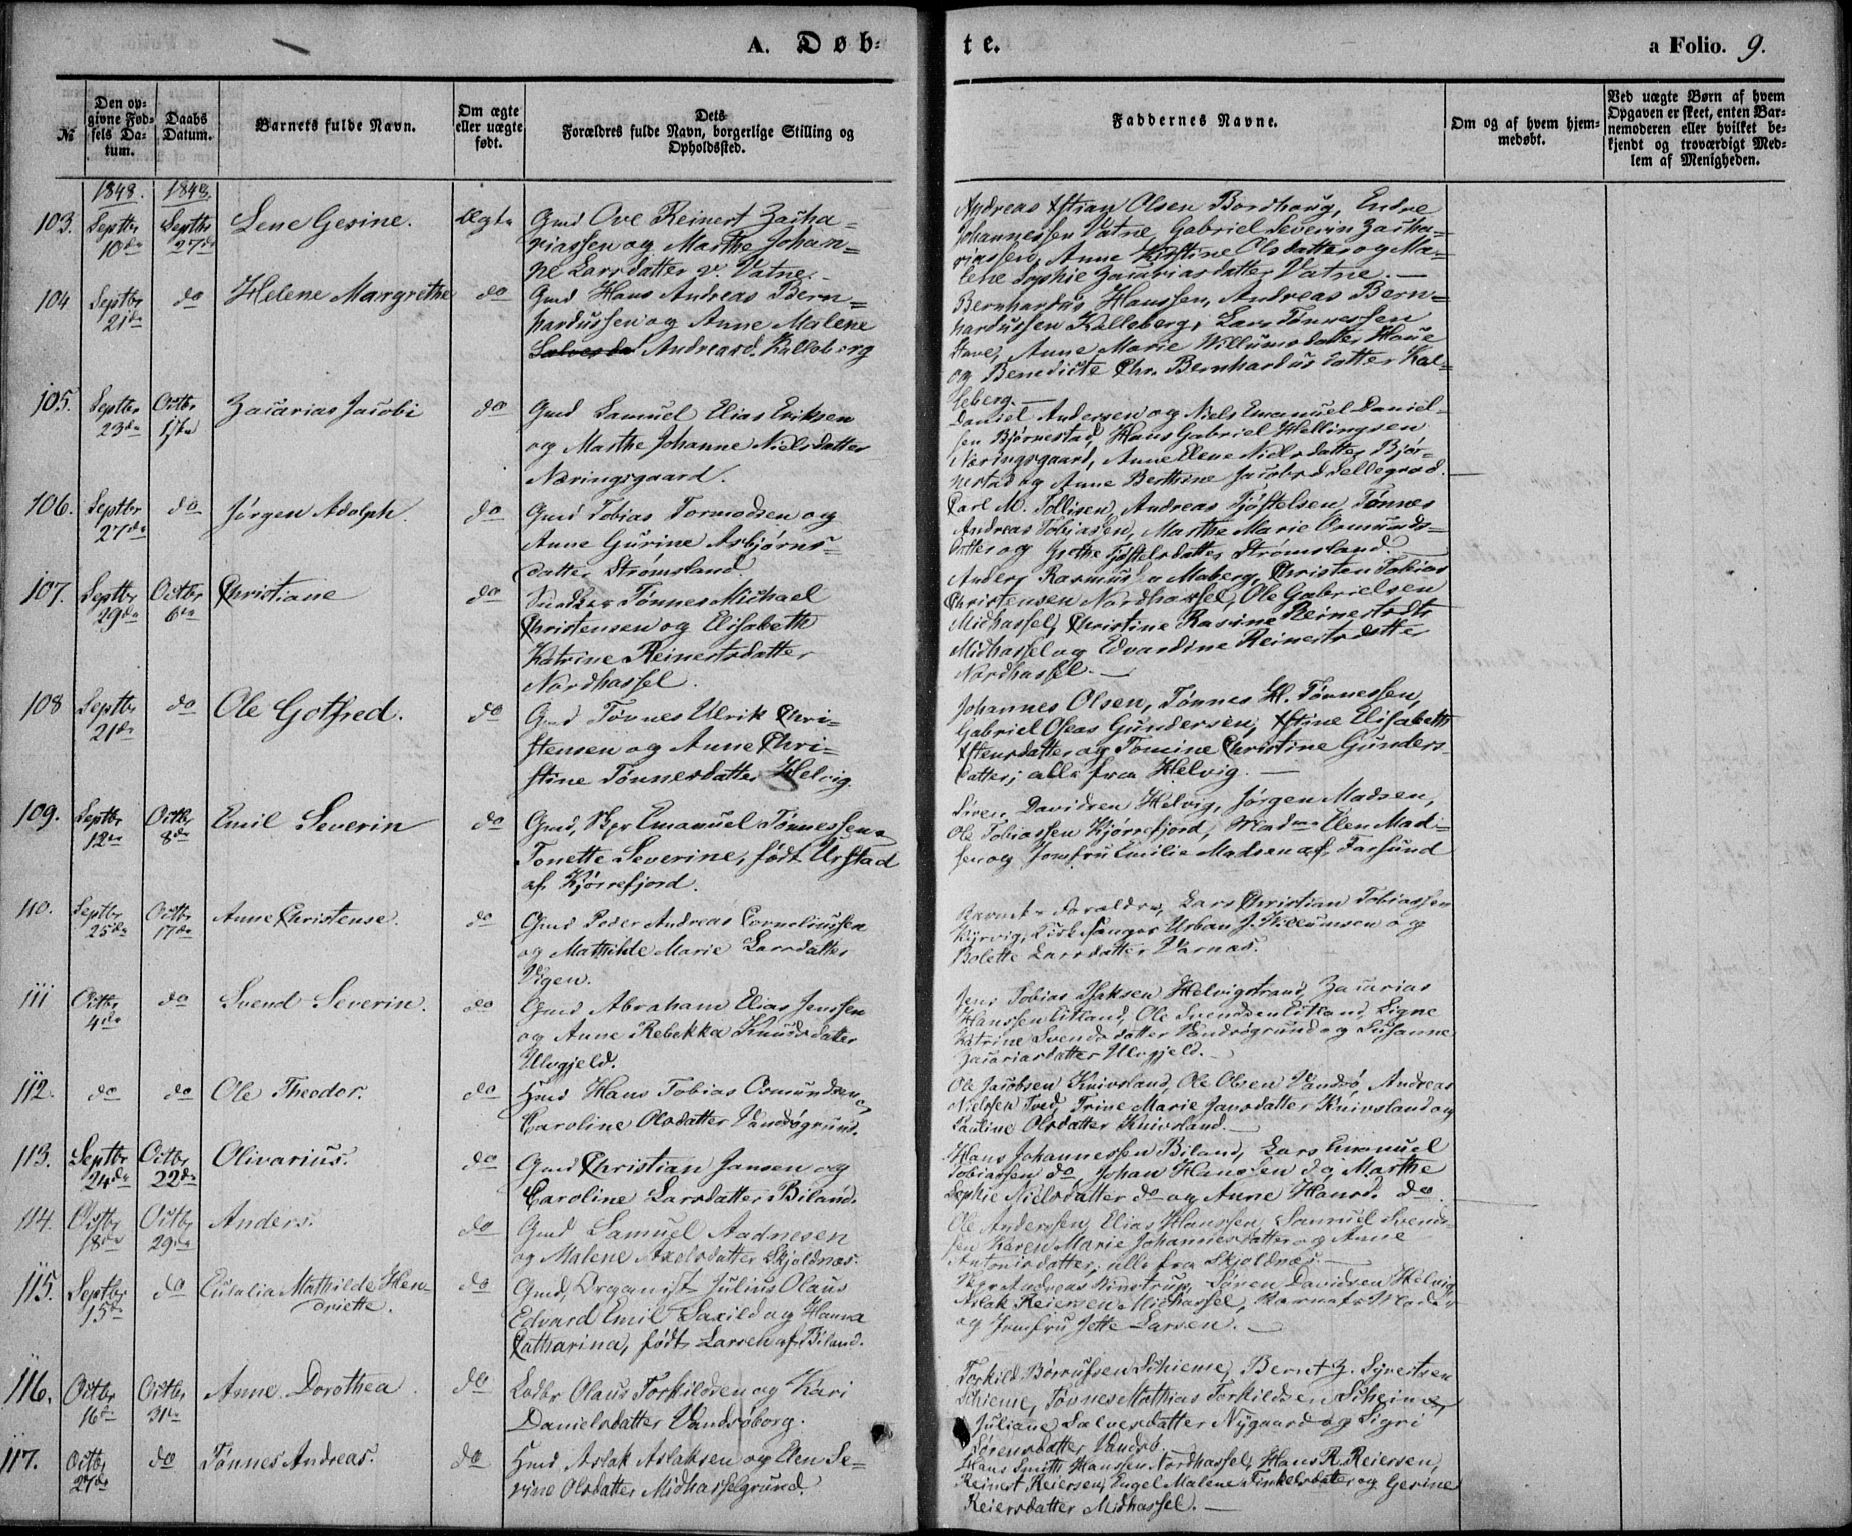 A. Døb-
te.
a Folio. 9.
№
Den opgivne Fødsels Datum.
Daabs Datum.
Barnets fulde Navn.
Om ægte eller uægte født.
Dets Forældres fulde Navn, borgerlige Stilling og Opholdssted.
Faddernes Navne.
Om og af hvem hjemmedøbt.
Ved uægte Børn af hvem Opgaven er skeet, enten Barnemoderen eller hvilket bekjendt og troværdigt Medlem af Menigheden.
1848. 1848.
103. Septbr 10de Septbr 27de Lene Gesine. Ægte
Gmd Ove Reinert Zacha=
riassen og Marthe Johan=
ne Larsdatter v. Vatne.
Andreas Xstian Olsen Bordhaug, Endre
Johannessen Vatne, Gabriel Severin Zacha=
riassen, Anne Kirstine Olsdatter og Ma=
lene Sophie Zachariasdatter Vatne. —
104 Septbr 21de do Helene Margrethe do
Gmd Hans Andreas Bern=
hardussen og Anne Malene
Andreasd. Kalleberg
Bernhardus Hanssen, Andreas Bern=
hardussen Kalleberg, Lars Tønnessen
Haue, Anne Marie Willumsdatter Haue
og Benedicte Chr. Bernhardusdatter Kal=
leberg. —
105. Septbr 23de Octbr 1ste Zacarias Jacobi do
Gmd Samuel Elias Eriksen
og Marthe Johanne Nielsdatter
Næringsgaard.
Daniel Andersen og Niels Emanuel Daniel-
sen Bjørnestad, Hans Gabriel Hellingsen
Næringsgaard, Anne Elene Nielsdatter Bjør=
nestad og Anne Berthine Jacobsd
106. Septbr 27de do Jørgen Adolph. do
Gmd Tobias Tormodsen og
Anne Gurine Asbjørns-
datter Strømsland.
Carl M. Tollisen, Andreas Tjøstelsen, Tønnes
Andreas Tobiassen, Marthe Marie Osmunds-
datter og Grethe Tjøstelsdatter Strømsland.
107. Septbr 29de Octbr 6te Christiane do
Tønnes Michael
Christensen og Elisabeth
Katrine Reinertsdatter
Nordhassel.
Anders Rasmussen Maberg, Christen Tobias
Christensen Nordhassel, Ole Gabrielsen
Midhassel, Christine Rasine Reinertsdtr
Midhassel og Edvardine Reinertsdatter
Nordhassel. —
108 Septbr 21de do Ole Gotfred. do
Gmd Tønnes Ulrik Chri-
stensen og Anne Chri-
stine Tønnesdatter Helvig
Johannes Olsen, Tønnes H. Tønnessen,
Gabriel Oseas Gundersen, Xstine Elisabeth
Xstensdatter og Tomine Christine Gunders-
datter; alle fra Helvig. —
109. Septbr 12te Octbr 8de Emil Severin do
Gmd, Bgr Emanuel Tønnessen og
Tonette Severine, født Urstad
af Kjørrefjord.
Søren Davidsen Helvig, Jørgen Madsen,
Ole Tobiassen Kjørrefjord, Madme Elen Mad-
sen og Jomfru Emilie Madsen af Farsund
110. Septbr 25de Octbr 17de Anne Christense. do
Gmd Peder Andreas Corneliussen
og Mathilde Marie Larsdatter
Vigen.
Barnets Forældre, Lars Christian Tobiassen
Kirkesanger Urban J. Willumsen og
Bolette Larsdatter Varnæs.
111 Octbr 4de do Svend Severin. do
Gmd Abraham Elias Jenssen
og Anne Rebekka Knudsdatter
Ulvgjeld.
Jens Tobias Isaksen Helvigstrand, Zacarias
Hanssen Eitland, Ole Svendsen Eitland, Signe
Katrine Svendsdatter Vandsøgrund og Susanne
Zacariasdatter Ulvgjeld. —
112. do do Ole Theodor. do
Hmd Hans Tobias Osmundsen og
Caroline Olsdatter Vandsøgrund.
Ole Jacobsen Knivsland, Ole Olsen Vandsø Andreas
Nielssen Tved, Trine Marie Jansdatter Knivsland og
Pauline Olsdatter Knivsland. —
113. Septbr 24de Octbr 22de Olivarius. do
Gmd Christian Jansen og
Caroline Larsdatter Biland.
Hans Johannessen Biland, Lars Emanuel
Tobiassen do Johan Hanssen do, Marthe
Sophie Nielsdatter do og Anne Hansd. do
114. Octbr 18de Octbr 29de Anders. do
Gmd Samuel Aadnesen
og Malene Axelsdatter Skjoldnæs.
Ole Anderssen, Elias Hanssen, Samuel Svend-
sen Karen Marie Johannesdatter og Anne
Antonisdatter; alle fra Skjoldnæs. —
115. Septbr 15de do Eulalia Mathilde Hen-
driette. do
Gmd, Organist Julius Olaus
Edvard Emil Saxild og Hanna
Catharina, født Larsen af Biland.
Bgr Andreas Kinstrup, Søren Davidsen Helvig
Aslak Reiersen Midhassel, Barnets Moder
og Jomfru Jette Larsen. —
116. Octbr 16de Octbr 31te Anne Dorothea. do
Lodbr Olaus Torkildsen og Kari
Danielsdatter Vandsøborg.
Torkild Børrufsen Schieme, Bernt Z. Syvertsen
Schieme, Tønnes Mathias Torkildsen Scheime,
Juliane Salvesdatter Nygaard og Sigri
Sørensdatter Vandsø.
117. Octbr 27de do Tønnes Andreas. do
Hmd Aslak Aslaksen og Elen Se=
vine Olsdatter Midhasselgrund.
Hans Smith Hanssen Nordhassel, Hans R. Reiersen,
Reinert Reiersen, Engel Malene Tinkelsdatter og Gesine
Reiersdatter Midhassel. —